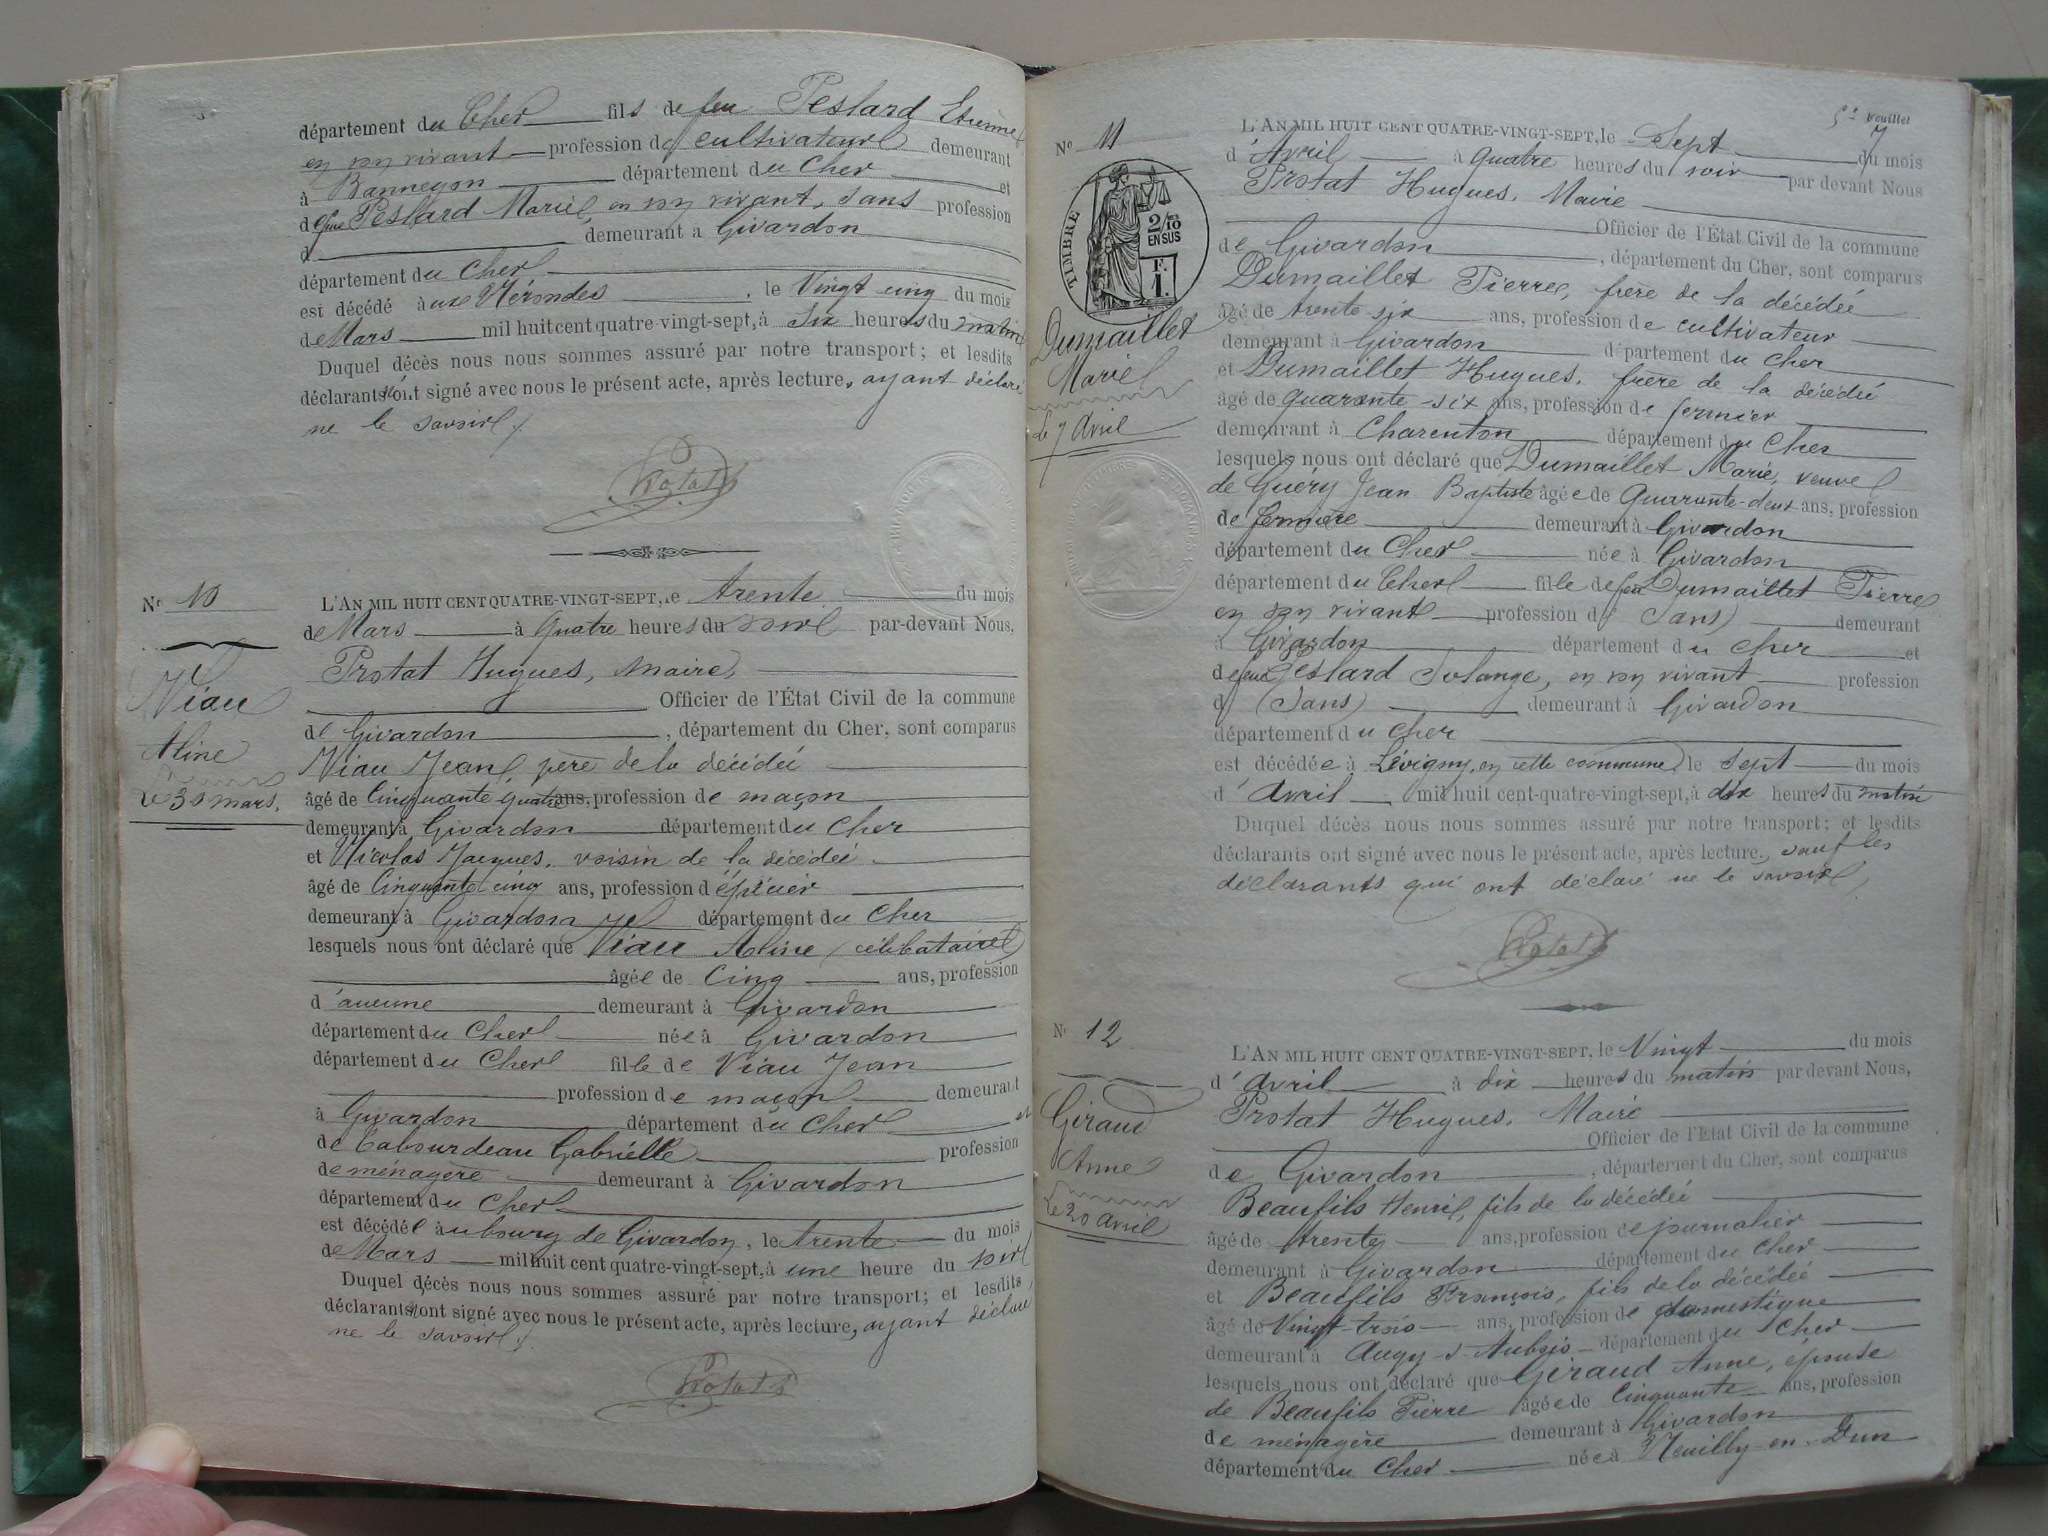 département du Cher fils de feu Peslard Etienne
en son vivant profession de cultivateur demeurant
à Bannegon département du Cher et
de feue Peslard Marie, en son vivant, sans profession
d demeurant à Givardon
département du Cher
est décédé aux Nérondes, le Vingt cinq du mois
de Mars mil huit cent quatre-vingt-sept, à Six heures du matin
Duquel décès nous nous sommes assuré par notre transport; et lesdits
déclarants n'ont signé avec nous le présent acte, après lecture, ayant déclaré
ne le savoir.
Protat
No 10
Viau
Aline
le 30 mars.
L'AN MIL HUIT CENT QUATRE-VINGT-SEPT, le trente du mois
de Mars à quatre heures du soir par-devant Nous,
Protat Hugues, Maire,
Officier de l'État Civil de la commune
de Givardon, département du Cher, sont comparus
Viau Jean, père de la décédée
âgé de Cinquante quatre ans, profession de maçon
demeurant à Givardon département du Cher
et Nicolas Jacques, voisin de la décédée
âgé de Cinquante cinq ans, profession d'épicier
demeurant à Givardon département du Cher
lesquels nous ont déclaré que Viau Aline (célibataire)
âgée de Cinq ans, profession
d'aucune demeurant à Givardon
département du Cher née à Givardon
département du Cher fille de Viau Jean
profession de maçon demeurant
à Givardon département du Cher et
de Cabourdeau Gabrielle profession
de ménagère demeurant à Givardon
département du Cher
est décédée au bourg de Givardon, le trente du mois
de Mars mil huit cent quatre-vingt-sept, à une heure du soir
Duquel décès nous nous sommes assuré par notre transport; et lesdits
déclarants n'ont signé avec nous le présent acte, après lecture, ayant déclaré
ne le savoir.
Protat
5e feuillet
7
No 11
TIMBRE
2/10
EN SUS
F.
1.
Dumaillet
Marie
le 7 Avril
L'AN MIL HUIT CENT QUATRE-VINGT-SEPT, le Sept du mois
d'Avril à quatre heures du soir par devant Nous
Protat Hugues, Maire
Officier de l'État Civil de la commune
de Givardon, département du Cher, sont comparus
Dumaillet Pierre, frère de la décédée
âgé de trente-six ans, profession de cultivateur
demeurant à Givardon département du Cher
et Dumaillet Hugues, frère de la décédée
âgé de quarante-six ans, profession de fermier
demeurant à Charenton département du Cher
lesquels nous ont déclaré que Dumaillet Marie, veuve
de Guéry Jean Baptiste âgée de Quarante-deux ans, profession
de fermière demeurant à Givardon
département du Cher née à Givardon
département du Cher fille de feu Dumaillet Pierre
en son vivant profession d (Sans) demeurant
à Givardon département du Cher et
de feue Peslard Solange, en son vivant profession
d (Sans) demeurant à Givardon
département du Cher
est décédée à Lévigny, en cette commune, le sept du mois
d'Avril mil huit cent-quatre-vingt-sept, à dix heures du matin
Duquel décès nous nous sommes assuré par notre transport; et lesdits
déclarants ont signé avec nous le présent acte, après lecture, sauf les
déclarants qui ont déclaré ne le savoir,
Protat
No 12
Giraud
Anne
le 20 avril
L'AN MIL HUIT CENT QUATRE-VINGT-SEPT, le Vingt du mois
d'Avril à dix heures du matin par devant Nous,
Protat Hugues, Maire
Officier de l'État Civil de la commune
de Givardon, département du Cher, sont comparus
Beaufils Henri, fils de la décédée
âgé de trente ans, profession de journalier
demeurant à Givardon département du Cher
et Beaufils François, fils de la décédée
âgé de Vingt-trois ans, profession de domestique
demeurant à Augy-s-Aubois département du Cher
lesquels nous ont déclaré que Giraud Anne, épouse
de Beaufils Pierre âgée de Cinquante ans, profession
de ménagère demeurant à Givardon
département du Cher née à Neuilly-en-Dun